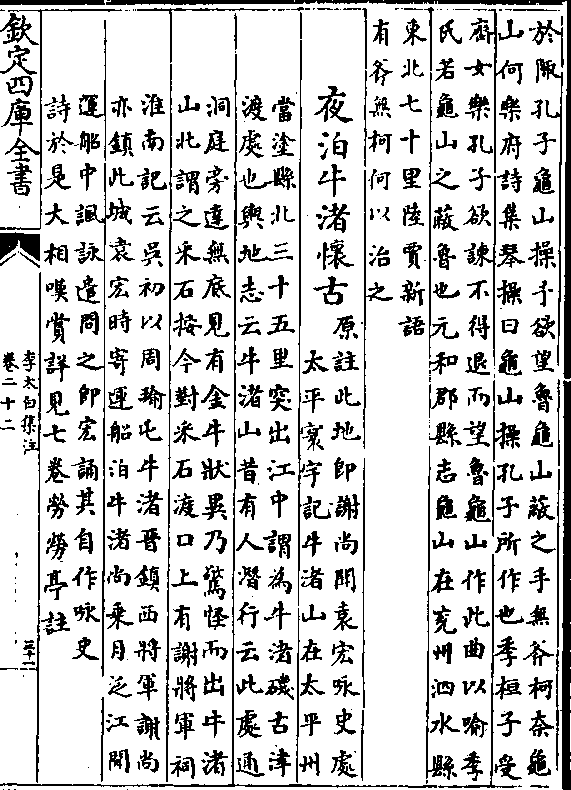 於陬孔子龜山操予欲望魯龜山蔽之手無斧柯奈龜
山何樂府詩集琴操曰龜山操孔子所作也季桓子受
齊女樂孔子欲諫不得退而望魯龜山作此曲以喻季
氏若龜山之蔽魯也元和郡縣志龜山在兗州泗水縣
東北七十里陸賈新語
有斧無柯何以治之
夜泊牛渚懷古
原註此地即謝尚聞袁宏咏史處
太平寰宇記牛渚山在太平州
當塗縣北三十五里突出江中謂為牛渚磯古津
渡處也輿地志云牛渚山昔有人潛行云此處通
洞庭旁達無底見有金牛狀異乃驚怪而出牛渚
山北謂之采石按今對采石渡口上有謝將軍祠
淮南記云吳初以周瑜屯牛渚晉鎮西將軍謝尚
亦鎮此城袁宏時寄運船泊牛渚尚乘月泛江聞
運船中諷詠遣問之即宏誦其自作咏史
詩於是大相嘆賞詳見七卷勞勞亭註
欽定四庫全書
李太白集注
卷二十二